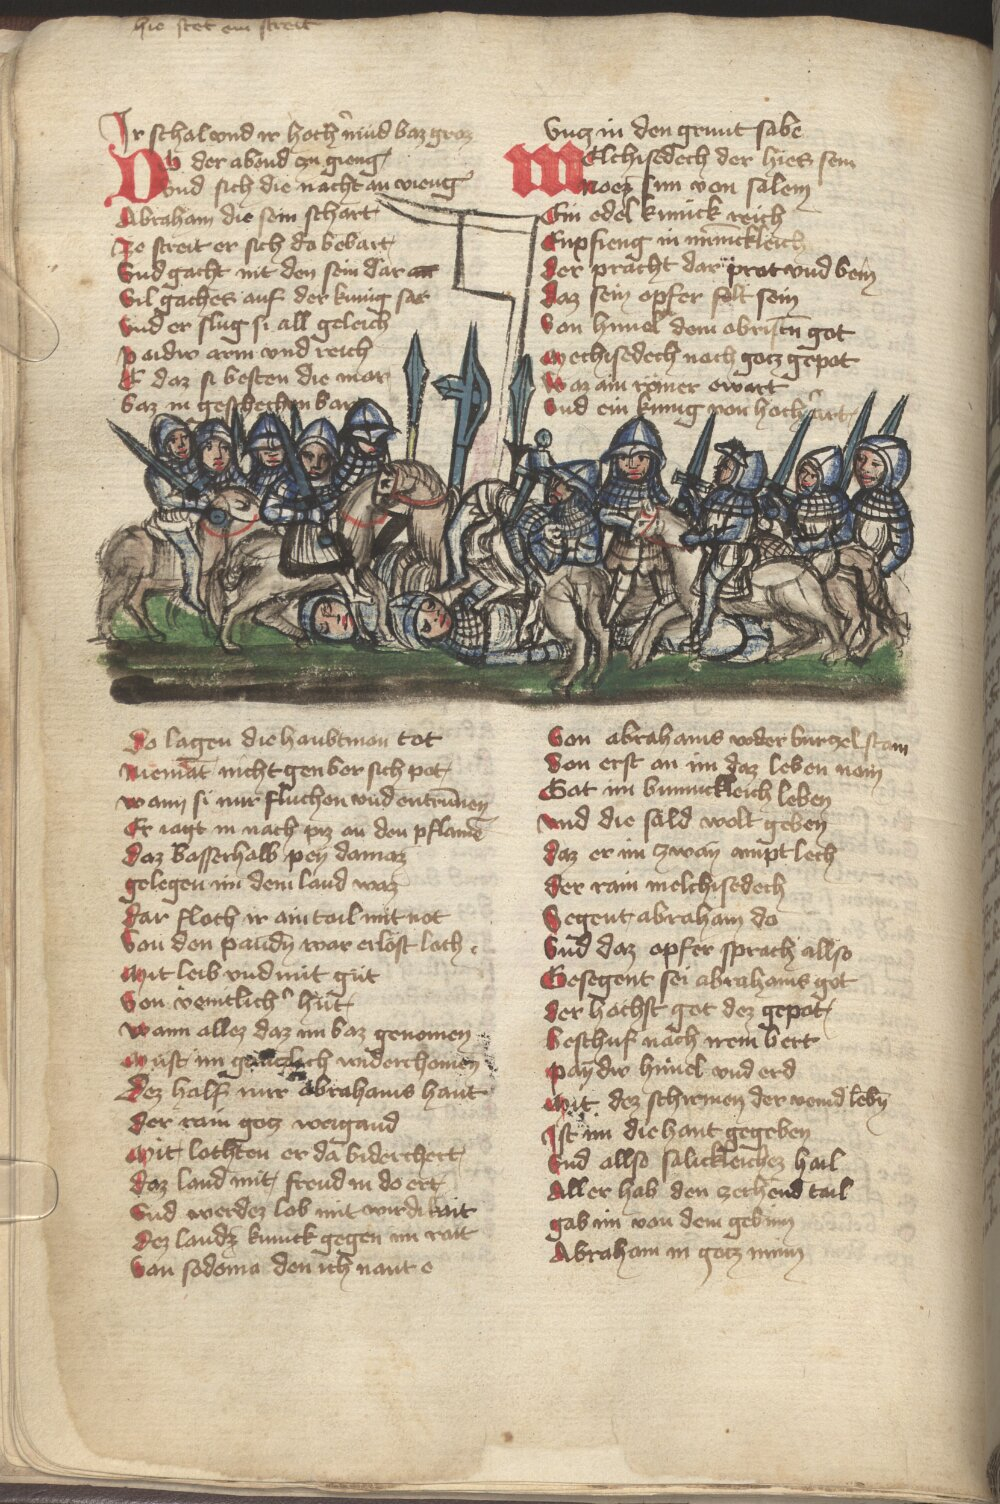 hie stet ein streit
Ir schal vnd ir hoch mud baz groz
Do der abend zu gieng
Vnd sich die nacht an vieng
Abraham die sein schart
Ze streit er sich do bebart
Vnd gacht mit den sein dar
Vil gaches auf der kunig sar
Vnd er slug si all geleich
Paidiw arm vnd reich
E daz si besten die mer
Baz in geschechen ber
Do lagen die haubtman tot
Niemant nicht gen ber sich pot
Wann si nur fluchen vnd entrunnen
Er iagt in nach piz an den pflanie
Daz basserhalb pey damaz
gelegen in dem land waz
Dar floch ir ain tail mit not
Von den pandn war erlost loth
Mit leib vnd mit gut
Von veintlicher hut
Wann allez daz im baz genomen
Must im genczlich widerchomen
Dez half nur Abrahams hant
Der rain gotz weigand
Mit lothen er da biderchert
Daz land mit freud in do ert
Vnd werdez lob mit wirdikait
Dez landz kunick gegen im rait
Von sodoma den ich nant e
Vncz in den grunt sabe
Melchisedech der hies sem
Noez sun von salem
Ein edel kunick reich
Enpfieng in minnickleich
Der pracht dar prot vnd bein
Daz sein opfer solt sein
Von himel dem obristen got
Mechisedech nach gotz gepot
Waz ain romer ewart
Vnd ein kunig von hocher art
Von abrahams wder burczel stam
Von erst an im daz leben nam
Gat im bunnickleich leben
Vnd die sald wolt geben
Daz er im zway ampt lech
Der rain melchisedech
Segent abraham do
Vnd daz opfer sprach allso
Gesegent sei abrahams got
Der hochst got dez gepot
Beschuf nach irem bert
Paydiw himel vnd erd
Mit dez schirmen der veind leben
Ist im die hant gegeben
Vnd allso salickleichez hail
Aller hab den zechend tail
gab im von dem gebinn
Abraham in gotz minn